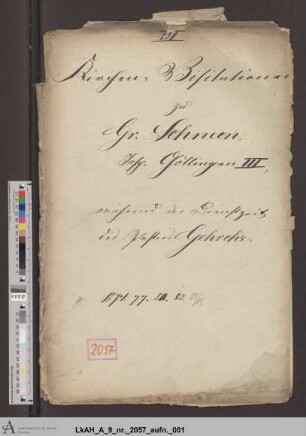 Kirchen-Visitationen
zu
Gr. Schneen.
Insp. Göttingen III,
während der Dienstzeit
des Pastors
77. 80.
2057
LkAH_A_9_nr._2057_aufn._001